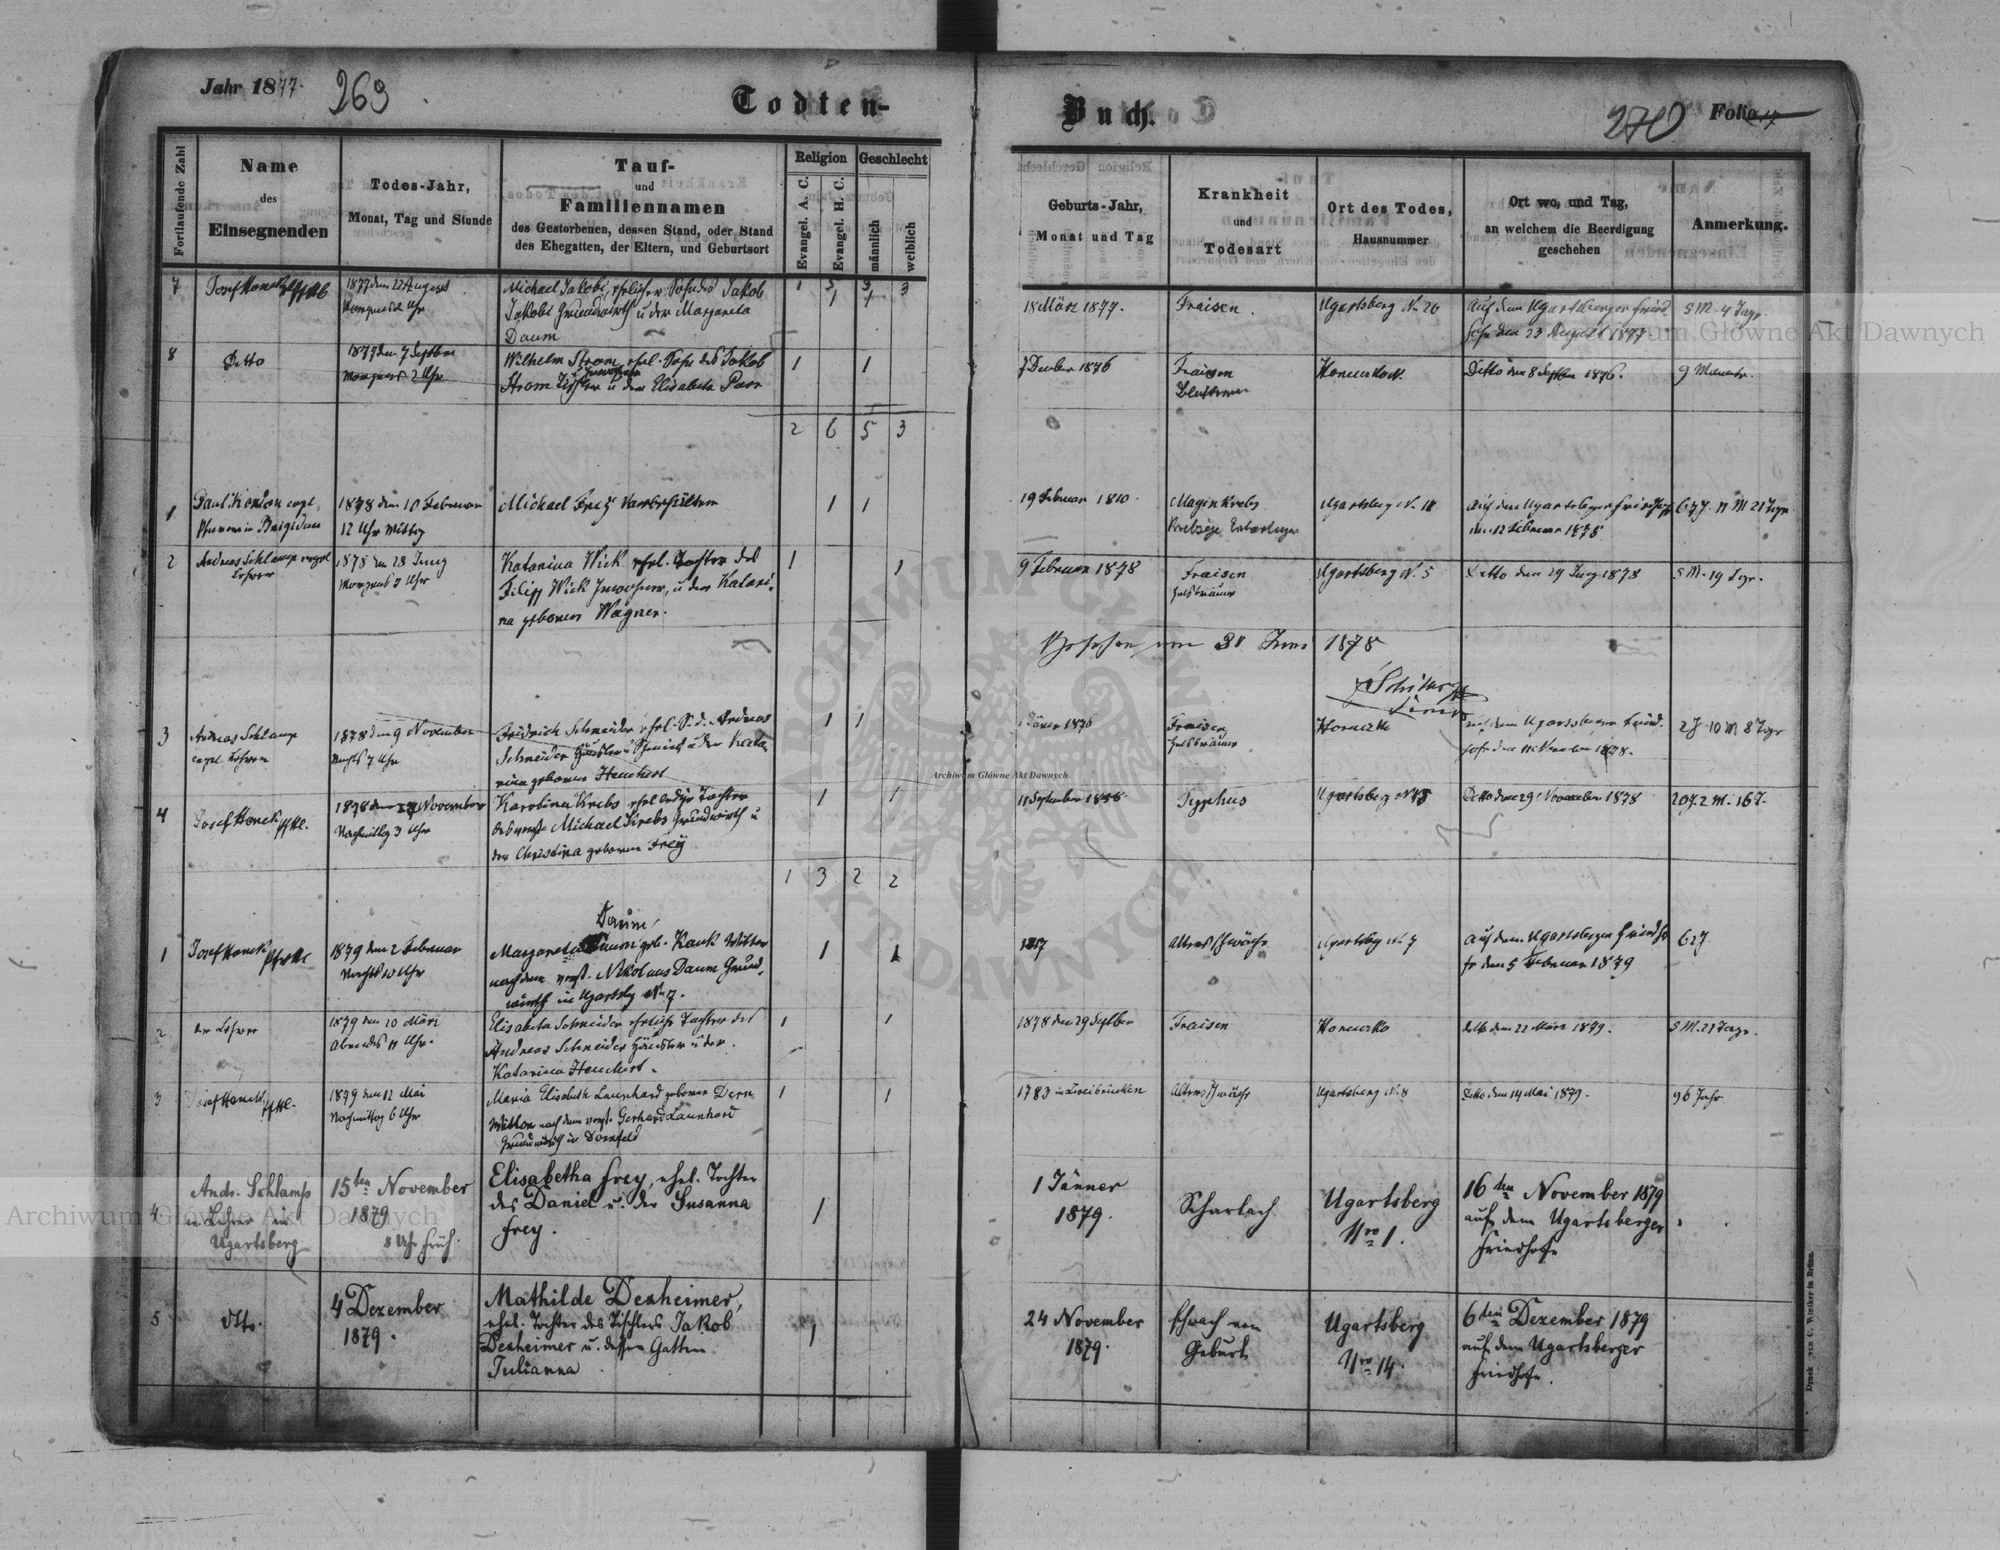 Jahr 1877. 269
Todten-
Buch.
270 Folio 17
Fortlaufende Zahl
Name
des
Einsegnenden
Todes-Jahr,
Monat, Tag und Stunde
Tauf-
und
Familiennamen
des Gestorbenen, dessen Stand, oder Stand
des Ehegatten, der Eltern, und Geburtsort
Religion
Evangel. A. C.
Evangel. H. C.
Geschlecht
männlich
weiblich
Geburts-Jahr,
Monat und Tag
Krankheit
und
Todesart
Ort des Todes,
Hausnummer
Ort wo, und Tag,
an welchem die Beerdigung
geschehen
Anmerkung.
7
Josef Honek
1877 den 22 August
Uhr
Michael Jakobi, ehelicher Sohn des Jakob
Jakobi Grundwirth u der Margareta
Daum
18 März 1877.
Fraisen.
Ugartsberg N. 20
Auf dem Ugartsberger Fried
hofe den 23 August 1877
5 M. 4 Tage.
8
Detto
1877 den 7 Septber
Morgens 2 Uhr
Wilhelm Strom, ehel. Sohn des Jakob
Strom u der Elisabeta
1 1
7 Dember 1876
Fraisen
Detto den 8 Septbr 1876.
9 Monate.
2 6 5 3
1
Paul
1878 den 10 Februar
12 Uhr Mittag
Michael Frey
1 1
19 Februar 1810.
Magenkrebs
Ugartsberg N. 11
Auf dem Ugartsberger Friedhofe
den 12 Februar 1878.
67 J. 11 M 21 Tage
2
Andreas Schlamp evgl
Lehrer
1878 den 28 July
Morgens 7 Uhr
Katarina Wick ehel. Tochter des
Filipp Wick Inwohner, u der Katari-
na geborene Wagner.
1 1
9 Februar 1878
Fraisen
Ugartsberg N. 5
Detto den 29 July 1878
5 M. 19 Tage.
1878
3
Andreas Schlamp
evgl. Lehrer
1878 den 9 November
Nachts 7 Uhr
Fridrich Schneider ehel. S. d. Andreas
Schneider Häusler u Schmied u der Kata-
rina geborene Heuchert
1 1
Jäner 1876
Fraisen
auf dem Ugartsberger Fried-
hofe den 11 November 1878.
2 J 10 M 8 Tage
4
Josef Honek
1878 den 27 November
Nachmittag 3 Uhr
Karolina Krebs ehel ledige Tochter
des verst. Michael Krebs Grundwirth u
der Christina geborene Frey
1 1
11 September 1858.
Typhus
Ugartsberg N 13
Detto den 29 November 1878
20 J. 2 M. 16 T.
1 3 2 2
1
Josef Honek
1879 den 2 Februar
Nachts 10 Uhr
Daum,
Margareta Daum geb. Kauk Witwe
nach dem verst. Nikolaus Daum Grund-
wirth in Ugartsbg N. 7.
1 1
1817
Altersschwäche
Ugartsbg N. 7
Auf dem Ugartsberger Friedho
fe den 5 Februar 1879
62 J.
2
der Lehrer
1879 den 20 März
Abends 11 Uhr.
Elisabeta Schneider eheliche Tochter des
Andreas Schneider Häusler u der.
Katarina Heuchert.
1 1
1878 den 29 Septber
Fraisen
detto den 22 März 1879.
5 M. 21 Tage.
3
Josef Honek
1879 den 12 Mai
Nachmittag 6 Uhr
Maria Elisabeth Launhard geborene Dern
Witwe nach dem verst. Gerhard Launhard
Grundwirth in Dornfeld
1 1
1783 in Zweibrücken
Altersschwäche
Ugartsberg N. 8
Detto den 14 Mai 1879.
96 Jahr
4
Andr. Schlamp
Lehrer in
Ugartsberg
15ten November
1879
8 Uhr früh.
Elisabetha Frey, ehel. Tochter
des Daniel u. der Susanna
Frey.
1
1 Jänner
1879.
Scharlach
Ugartsberg
Nro 1.
16ten November 1879
auf dem Ugartsberger
Friedhofe
5
dtto.
4 Dezember
1879.
Mathilde Dexheimer,
ehel. Tochter des Tischlers Jakob
Dexheimer u. dessen Gattin
Julianna
1
24 November
1879.
schwach von
Geburt
Ugartsberg
Nro 14.
6ten Dezember 1879
auf dem Ugartsberger
Friedhofe.
Druck von C. Winiker in Brünn.
Archiwum Główne Akt Dawnych
Archiwum Główne Akt Dawnych
Archiwum Główne Akt Dawnych
ARCHIWUM GŁÓWNE AKT DAWNYCH